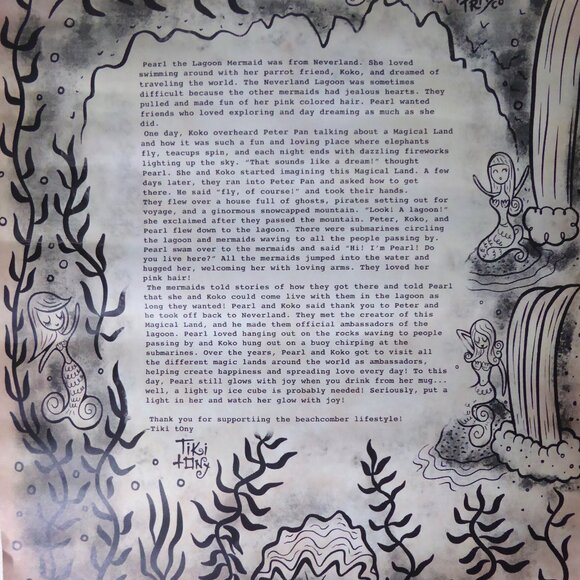 Pearl the Lagoon Mermaid was from Neverland. She loved
swimming around with her parrot friend, Koko, and dreamed of
traveling the world. The Neverland Lagoon was sometimes
difficult because the other mermaids had jealous hearts. They
pulled and made fun of her pink colored hair. Pearl wanted
friends who loved exploring and day dreaming as much as she
did.
One day, Koko overheard Peter Pan talking about a Magical Land
and how it was such a fun and loving place where elephants
fly, teacups spin, and each night ends with dazzling fireworks
lighting up the sky. "That sounds like a dream!" thought
Pearl. She and Koko started imagining this Magical Land. A few
days later, they ran into Peter Pan and asked how to get
there. He said "fly, of course!" and took their hands.
They flew over a house full of ghosts, pirates setting out for
voyage, and a ginormous snowcapped mountain. "Look! A lagoon!"
she exclaimed after they passed the mountain. Peter, Koko, and
Pearl flew down to the lagoon. There were submarines circling
the lagoon and mermaids waving to all the people passing by.
Pearl swam over to the mermaids and said "Hi! I'm Pearl! Do
you live here?" All the mermaids jumped into the water and
hugged her, welcoming her with loving arms. They loved her
pink hair!
The mermaids told stories of how they got there and told Pearl
that she and Koko could come live with them in the lagoon as
long they wanted! Pearl and Koko said thank you to Peter and
he took off back to Neverland. They met the creator of this
Magical Land, and he made them official ambassadors of the
lagoon. Pearl loved hanging out on the rocks waving to people
passing by and Koko hung out on a buoy chirping at the
submarines. Over the years, Pearl and Koko got to visit all
the different magic lands around the world as ambassadors,
helping create happiness and spreading love every day! To this
day, Pearl still glows with joy when you drink from her mug...
well, a light up ice cube is probably needed! Seriously, put a
light in her and watch her glow with joy!
Thank you for supportiing the beachcomber lifestyle!
-Tiki tOny
Tiki
tOny